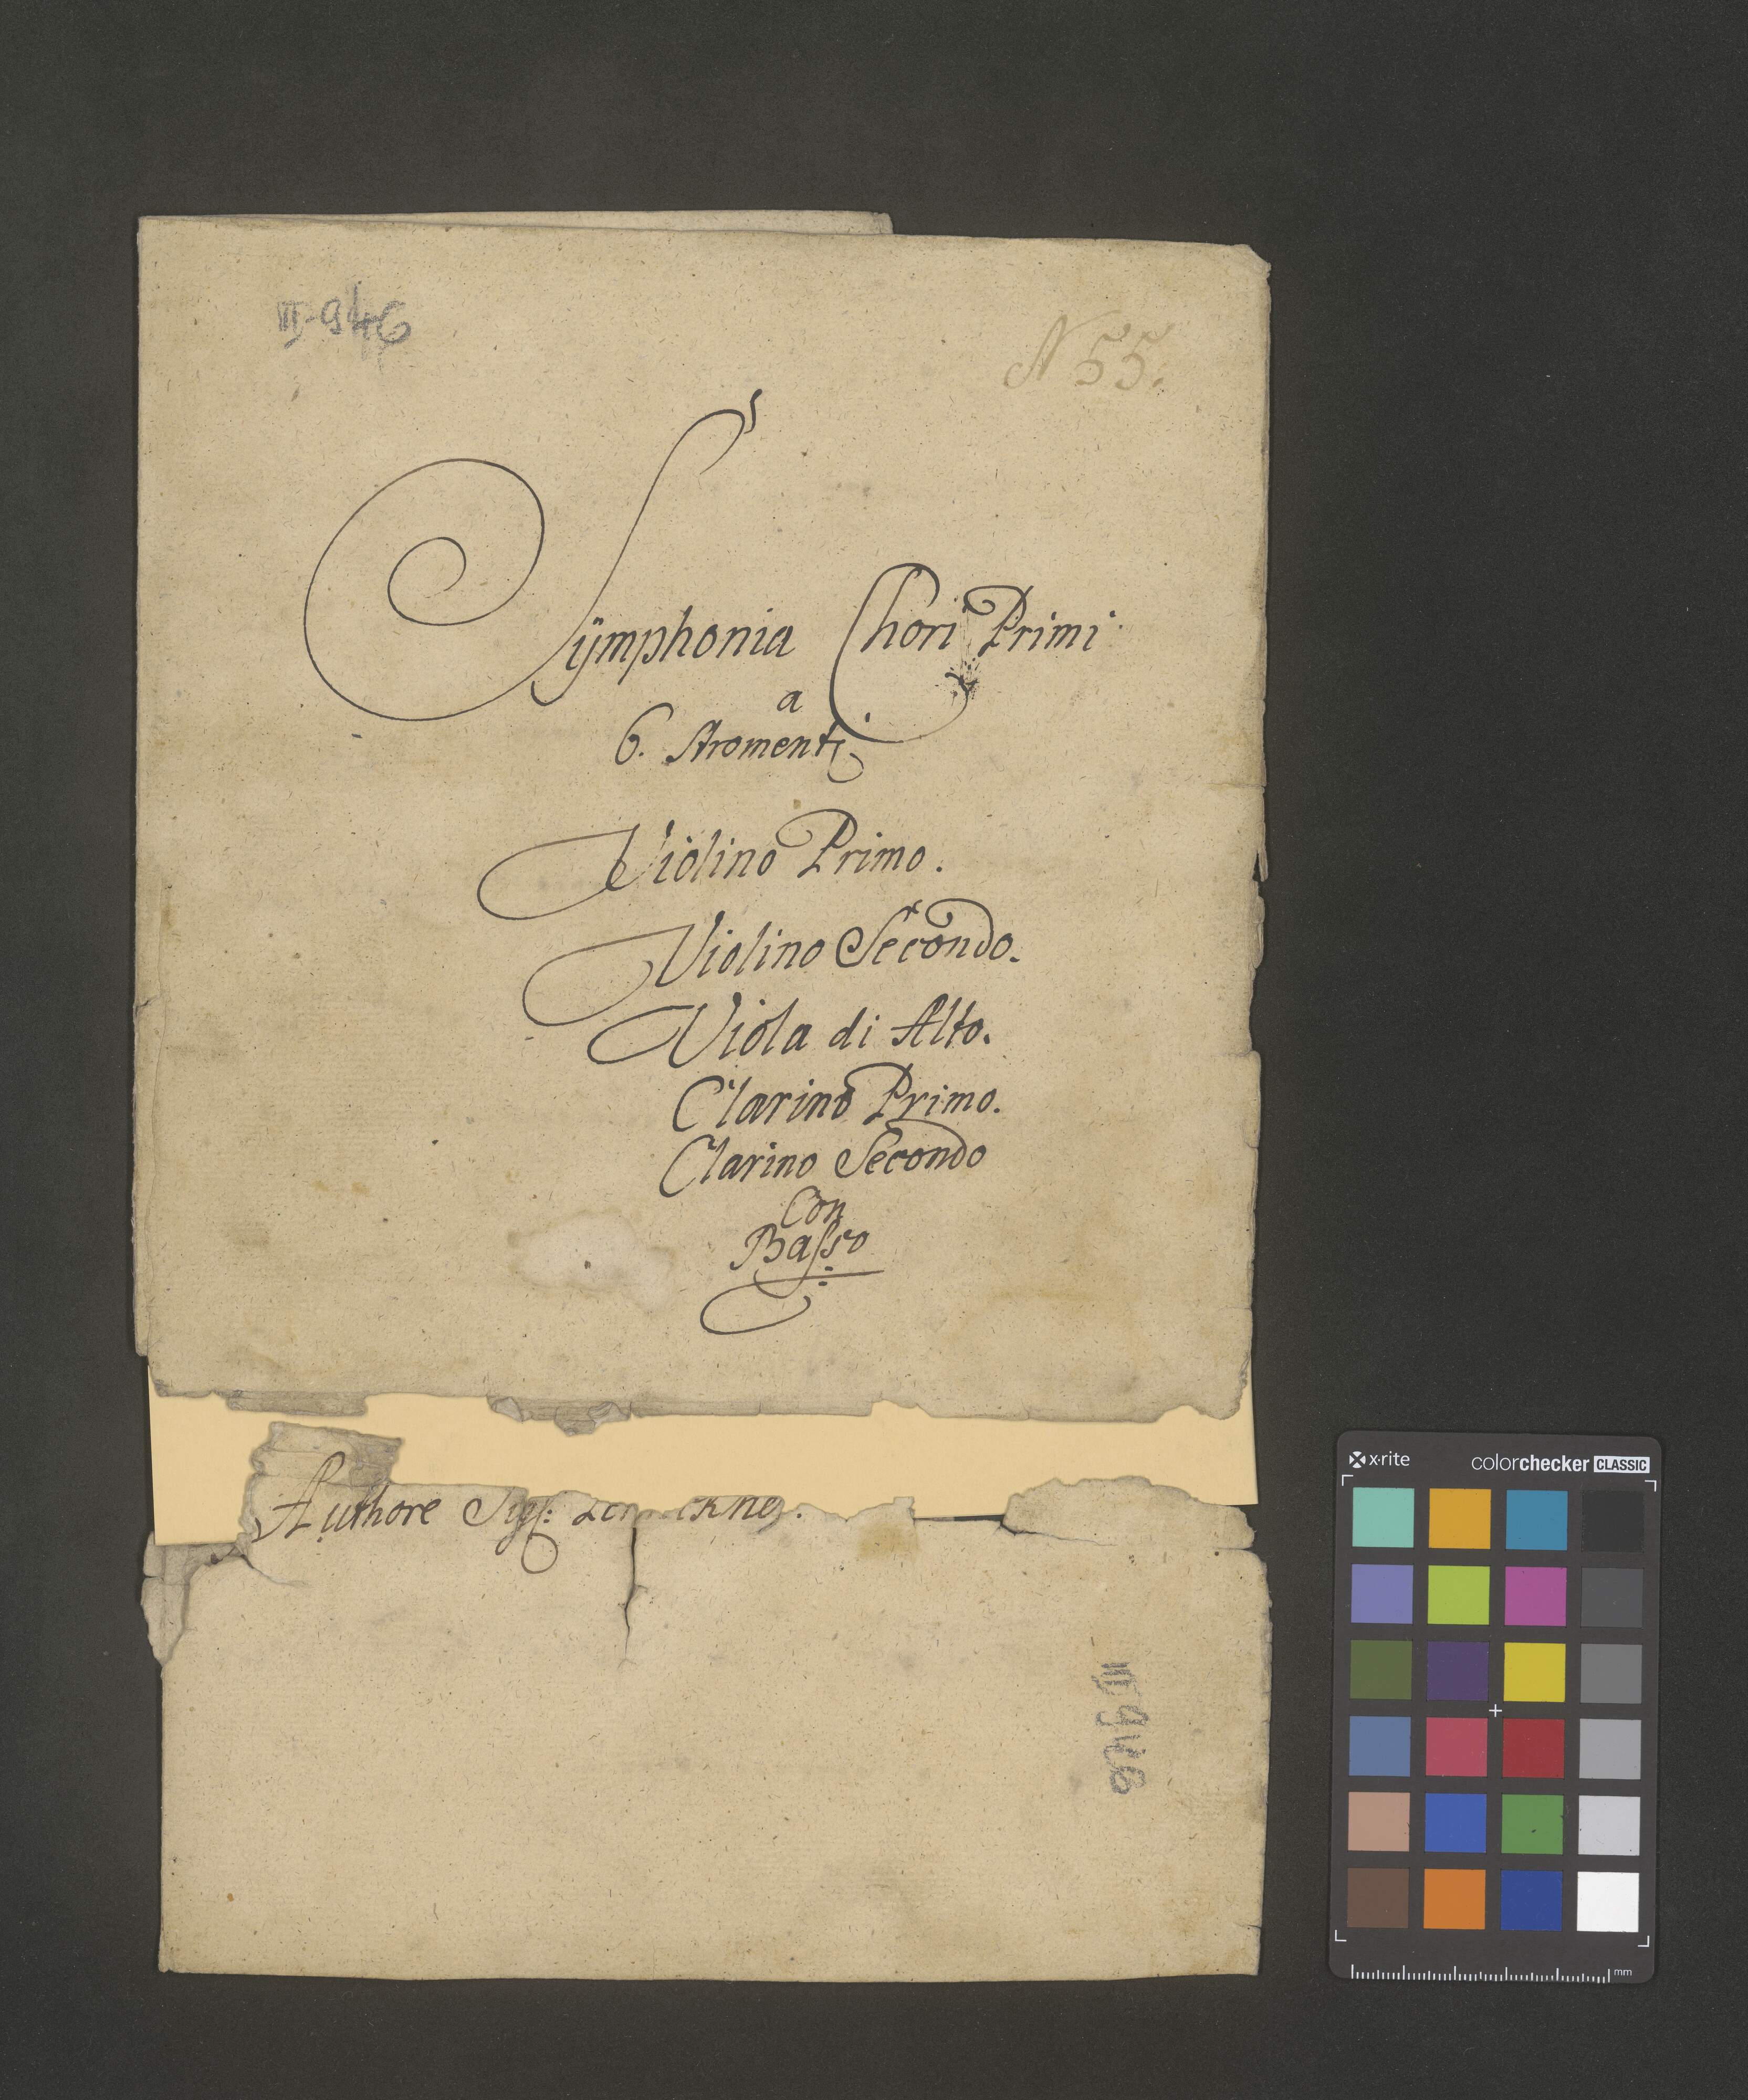 III-946
N 55.
Sÿmphonia Chori Primi
a
6. Stromenti
Violino Primo.
Violino Secondo.
Viola di Alto.
Clarino Primo.
Clarino Secondo
Con
Baſso
Authore Sigſ:
III 946
x·rite colorchecker CLASSIC
mm